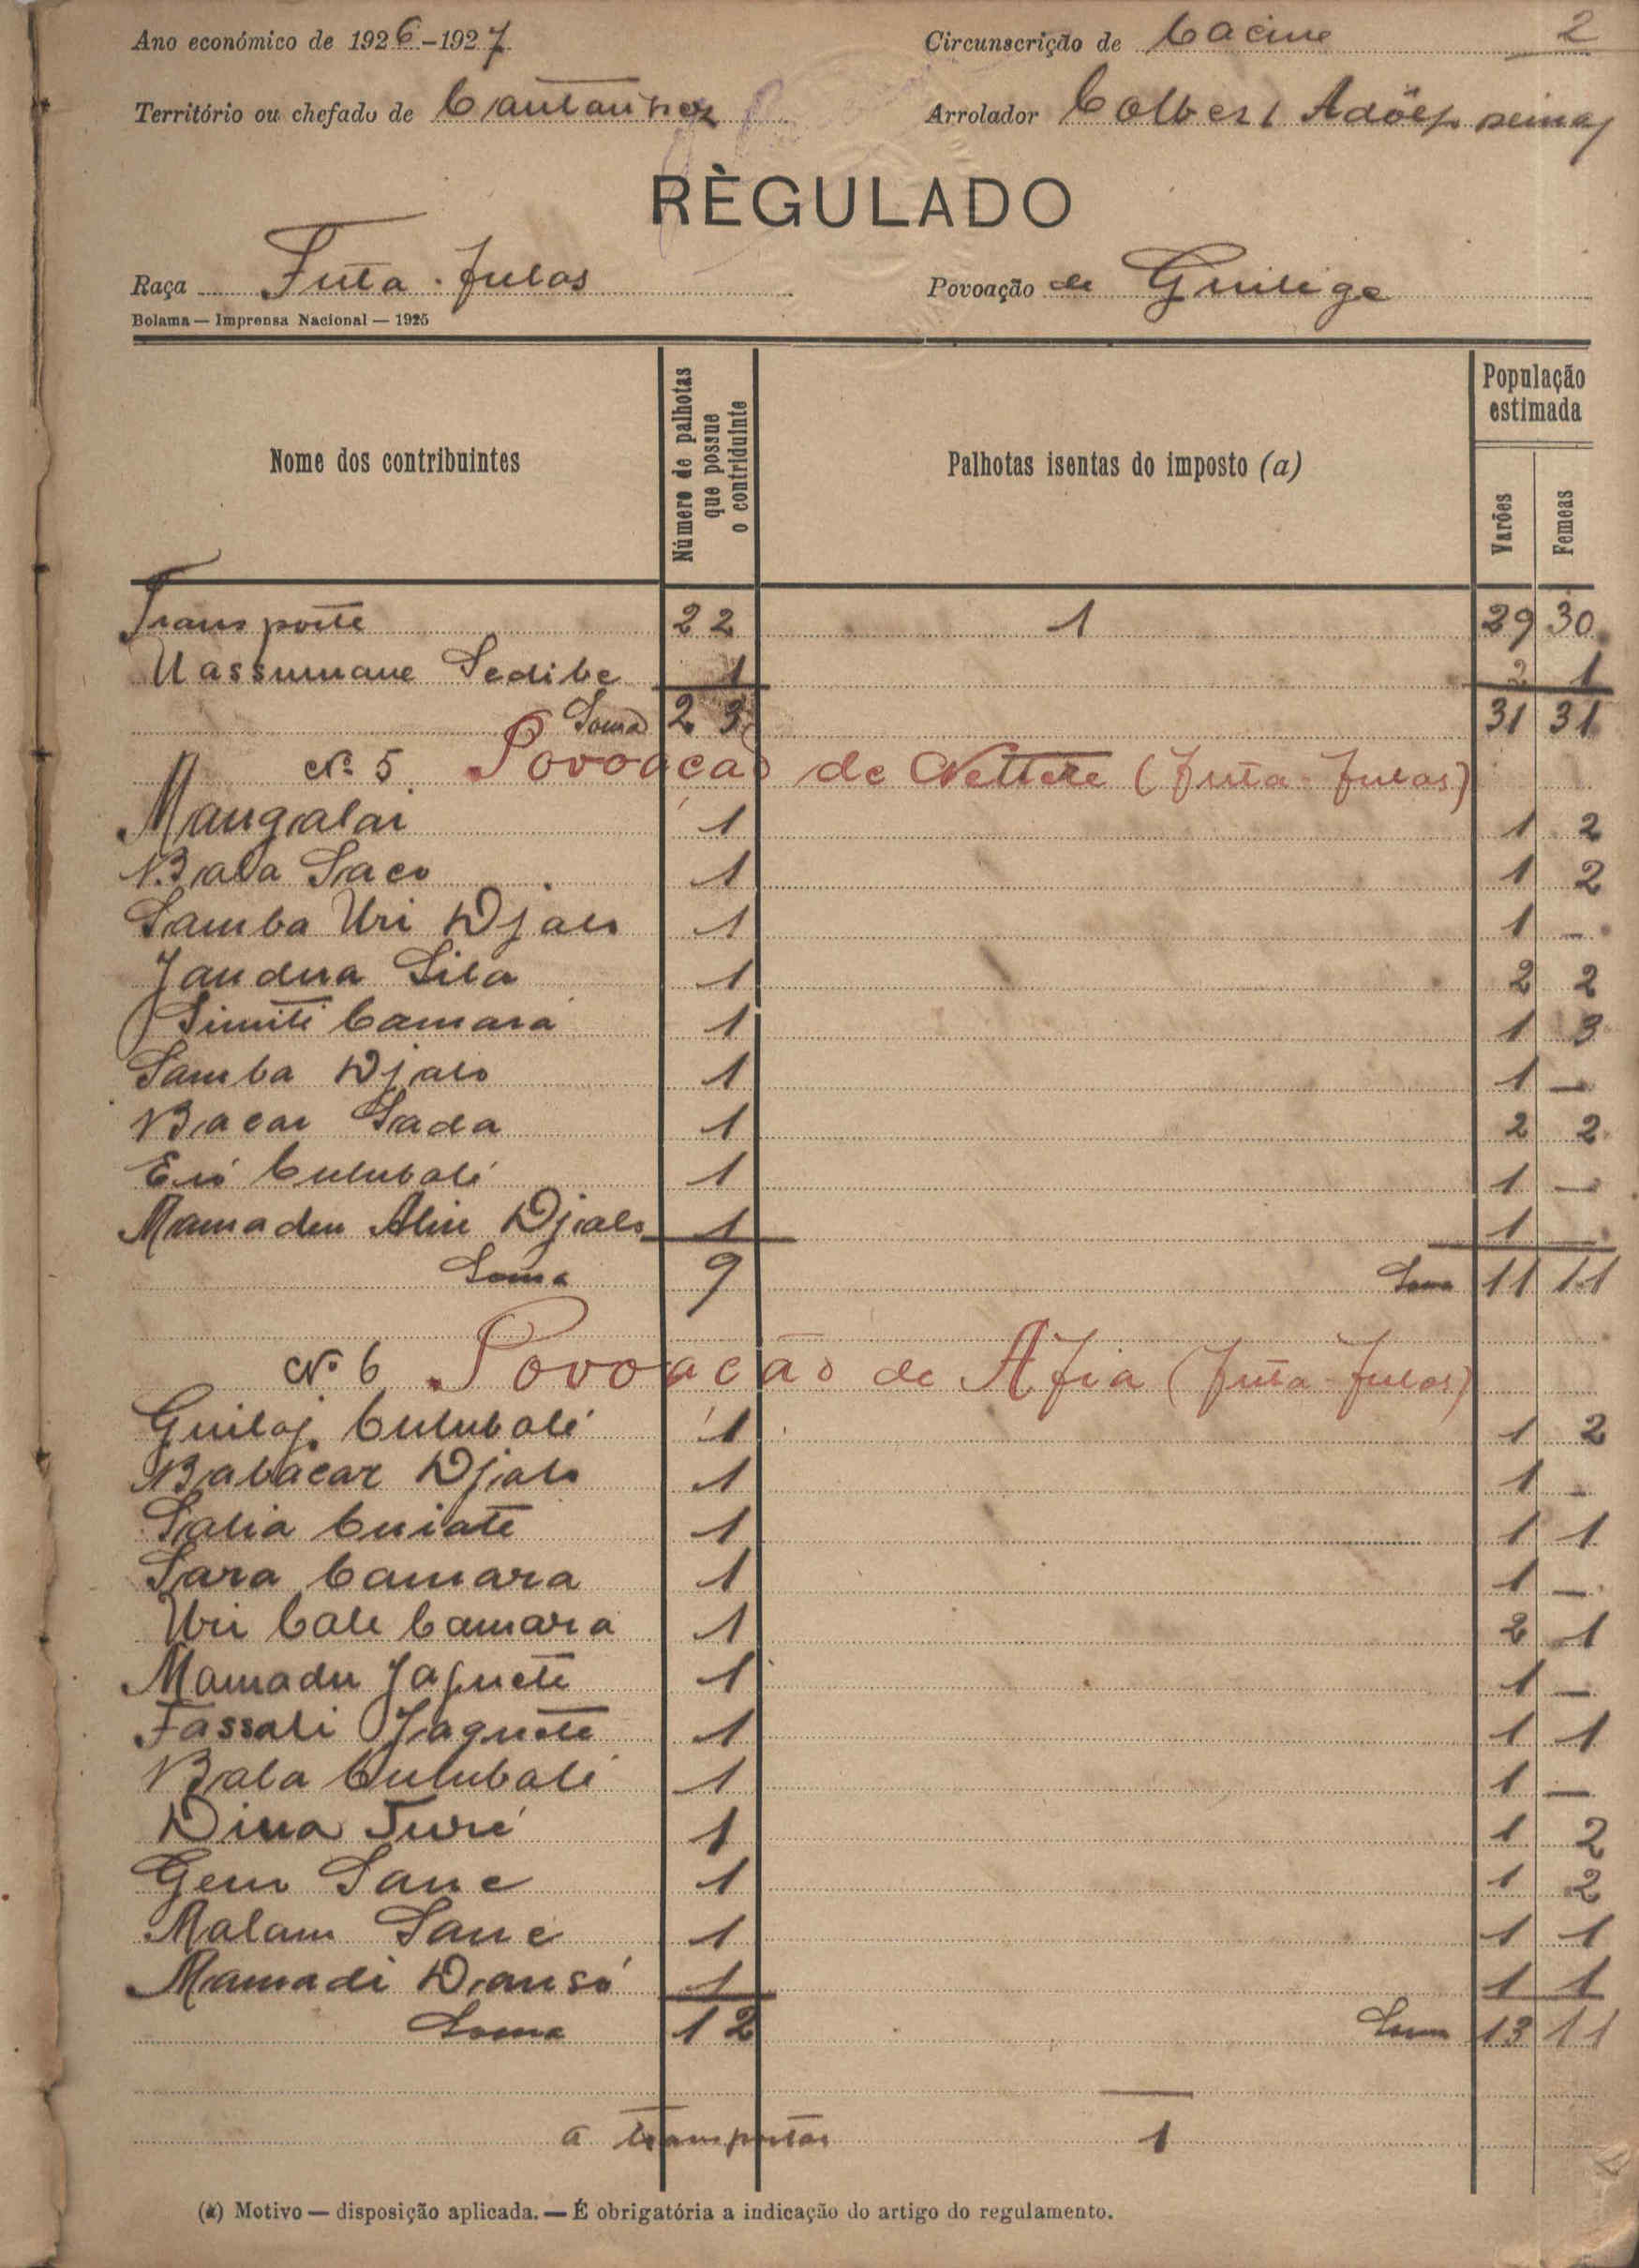 Ano económico de 1926-1927 Circunscrição de Cacine 2
Território ou chefado de Cantanhez Arrolador Colbert Adöef
RÈGULADO
Raça Futa-fulas Povoação de Guilige
Bolama — Imprensa Nacional — 1925
Nome dos contribuintes Número de palhotas que possue o contriduinte Palhotas isentas do imposto (a) População estimada Varões Femeas
Transporte 22 1 29 30
Uassumane Sedibe 1 2 1
Soma 23 31 31
Nº 5 Povoacão de Nettere (futa-fulas)
Mangalai 1 1 2
Bala Saco 1 1 2
Samba Uri Djalo 1 1 -
Jandua Sila 1 2 2
Simiti Camara 1 1 3
Samba Djalo 1 1 —
Bacar Sada 1 2 2
Eió Culubali 1 1 —
Mamadu Aliu Djalo 1 1 —
Soma 9 Soma 11 11
Nº 6 Povoacão de Afia (futa-fulas)
Guiloj Culubali 1 1 2
Babacar Djalo 1 1 -
Salia Cuiate 1 1 1
Sara Camara 1 1 —
Uri Cale Camara 1 2 1
Mamadu Jaquete 1 1 —
Fassali Jaquete 1 1 1
Bala Culubali 1 1 —
Dina Turé 1 1 2
Geru Sane 1 1 2
Malam Sane 1 1 1
Mamadi Dansó 1 1 1
Soma 12 Soma 13 11
a transportar 1
(a) Motivo — disposição aplicada. — É obrigatória a indicação do artigo do regulamento.